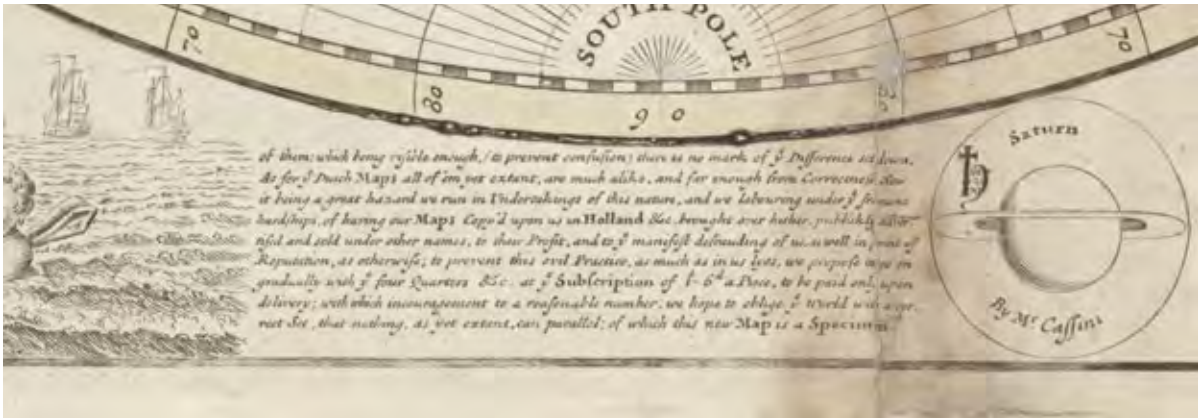 SOUTH POLE
70
80
9 0
80
70
of them; which being visible enough, (to prevent confusion) there is no mark of yͤ Difference set down.
As for yͤ Dutch Maps all of 'em yet extant, are much alike, and far enough from Correctness. Now
it being a great hazard we run in Undertakings of this nature, and we labouring under yͤ
hardships, of having our Maps Copy'd upon us in Holland &c. brought over hither, publickly adver-
tised and sold under other names, to their Profit, and to yͤ manifest defrauding of us, as well in point of
Reputation, as otherwise; to prevent this evil Practice, as much as in us lyes, we propose to go on
gradually with yͤ four Quarters &c. at yͤ Subscription of 1ˢ-6ᵈ a Piece, to be paid only upon
delivery; with which incouragement to a reasonable number, we hope to oblige yͤ World with a cor-
rect See, that nothing, as yet extent, can parallel; of which this new Map is a Specimen
Saturn
♄
By Mʳ Cassini